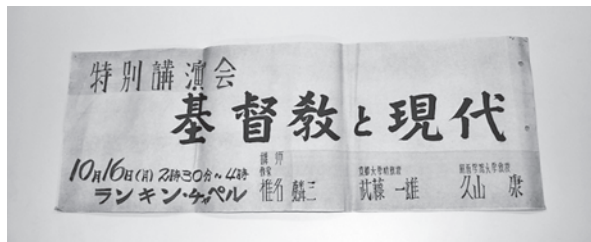 特別講演会
基督教と現代
10月16日(月) 2時30分~4時
ランキン・チャペル
講師
作家
椎名 麟三
京都大学助教授
武藤 一雄
関西学院大学教授
久山 康